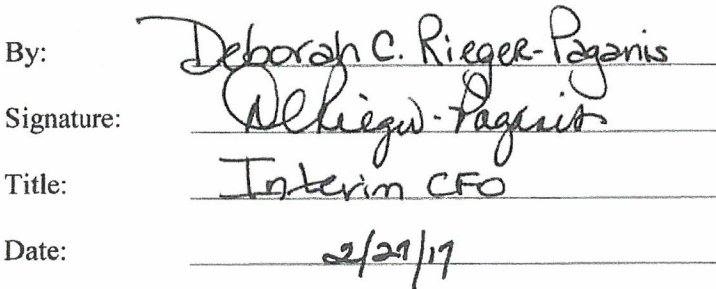 By: Deborah C. Rieger-Paganis
Signature: DCRieger-Paganis
Title: Interim CFO
Date: